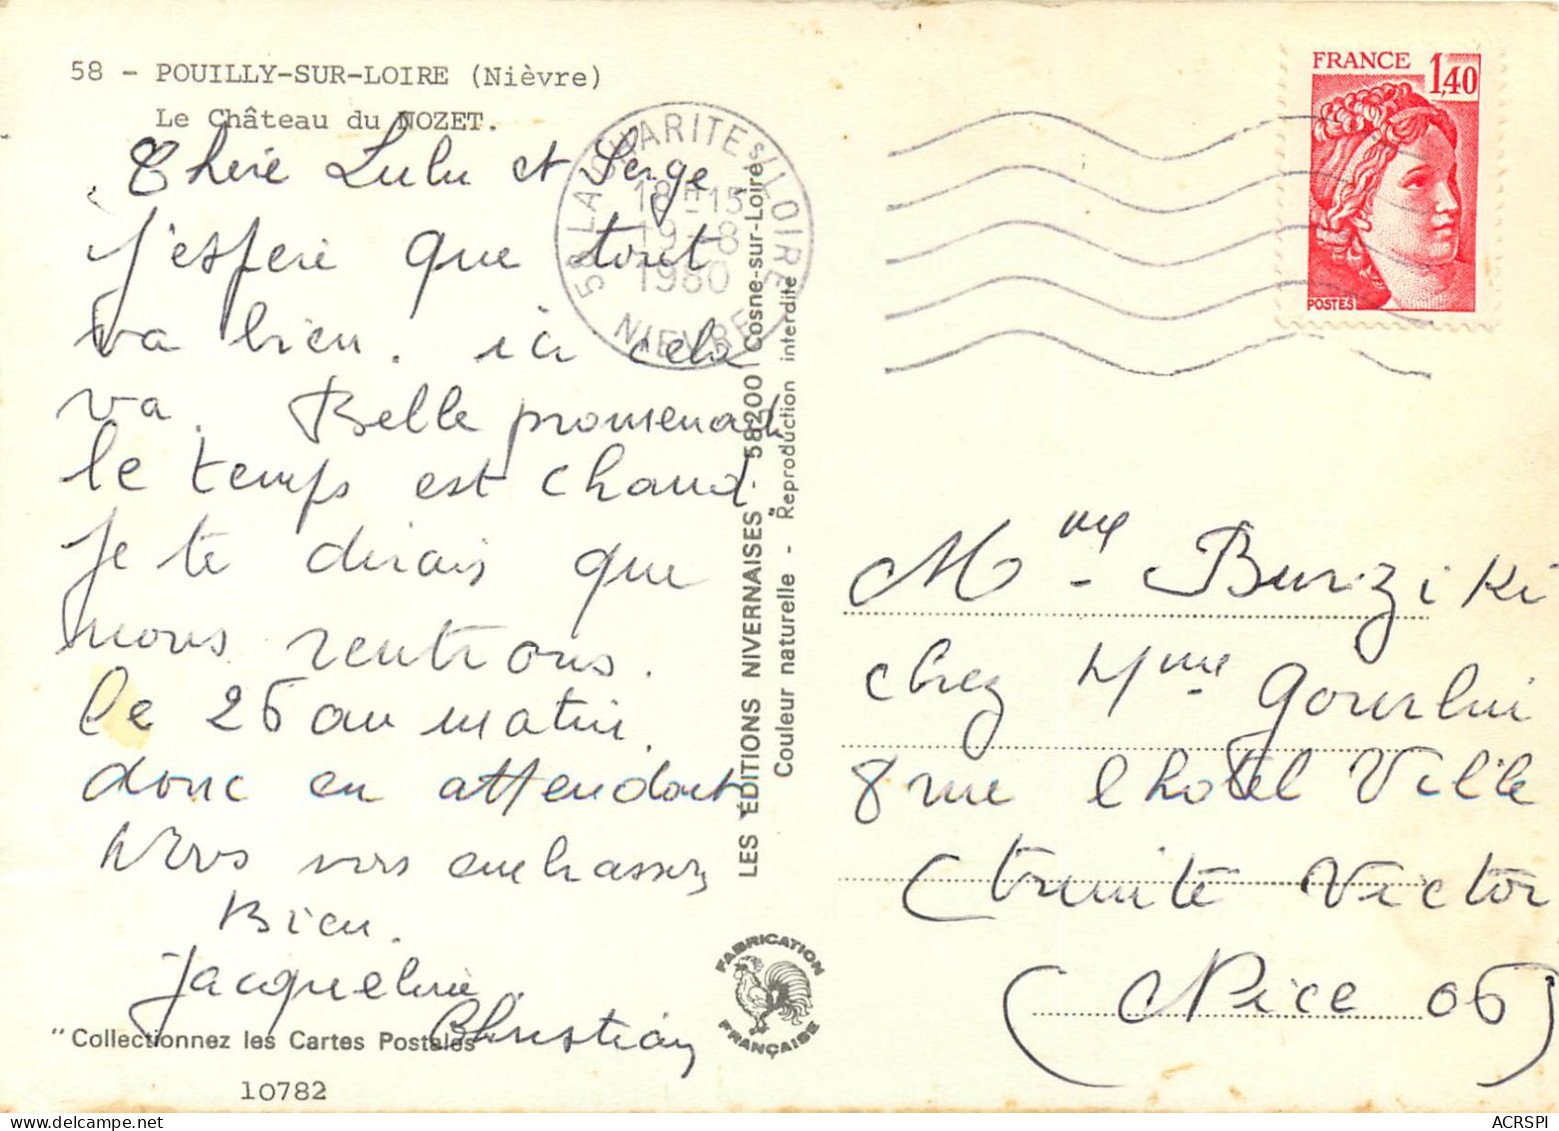 58 - POUILLY-SUR-LOIRE (Nièvre)
Le Château du NOZET.
Chère Lulu et Serge
J'espère que tout
va bien. ici cela
va. Belle promenade
le temps est chaud.
Je te dirais que
nous rentrons.
le 26 au matin.
donc en attendant
Nous vous embrassons
Bien.
Jacqueline.
Christian
"Collectionnez les Cartes Postales"
10782
58 LA CHARITE S/LOIRE
18H15
19-8
1980
NIEVRE
"LES ÉDITIONS NIVERNAISES" 58200 Cosne-sur-Loire
Couleur naturelle - Reproduction interdite
FABRICATION
FRANÇAISE
FRANCE
1,40
POSTES
Mme Burziki
chez Mme Gourlui
8 rue l hotel Ville
Victor
(Nice 06)
ACRSPI